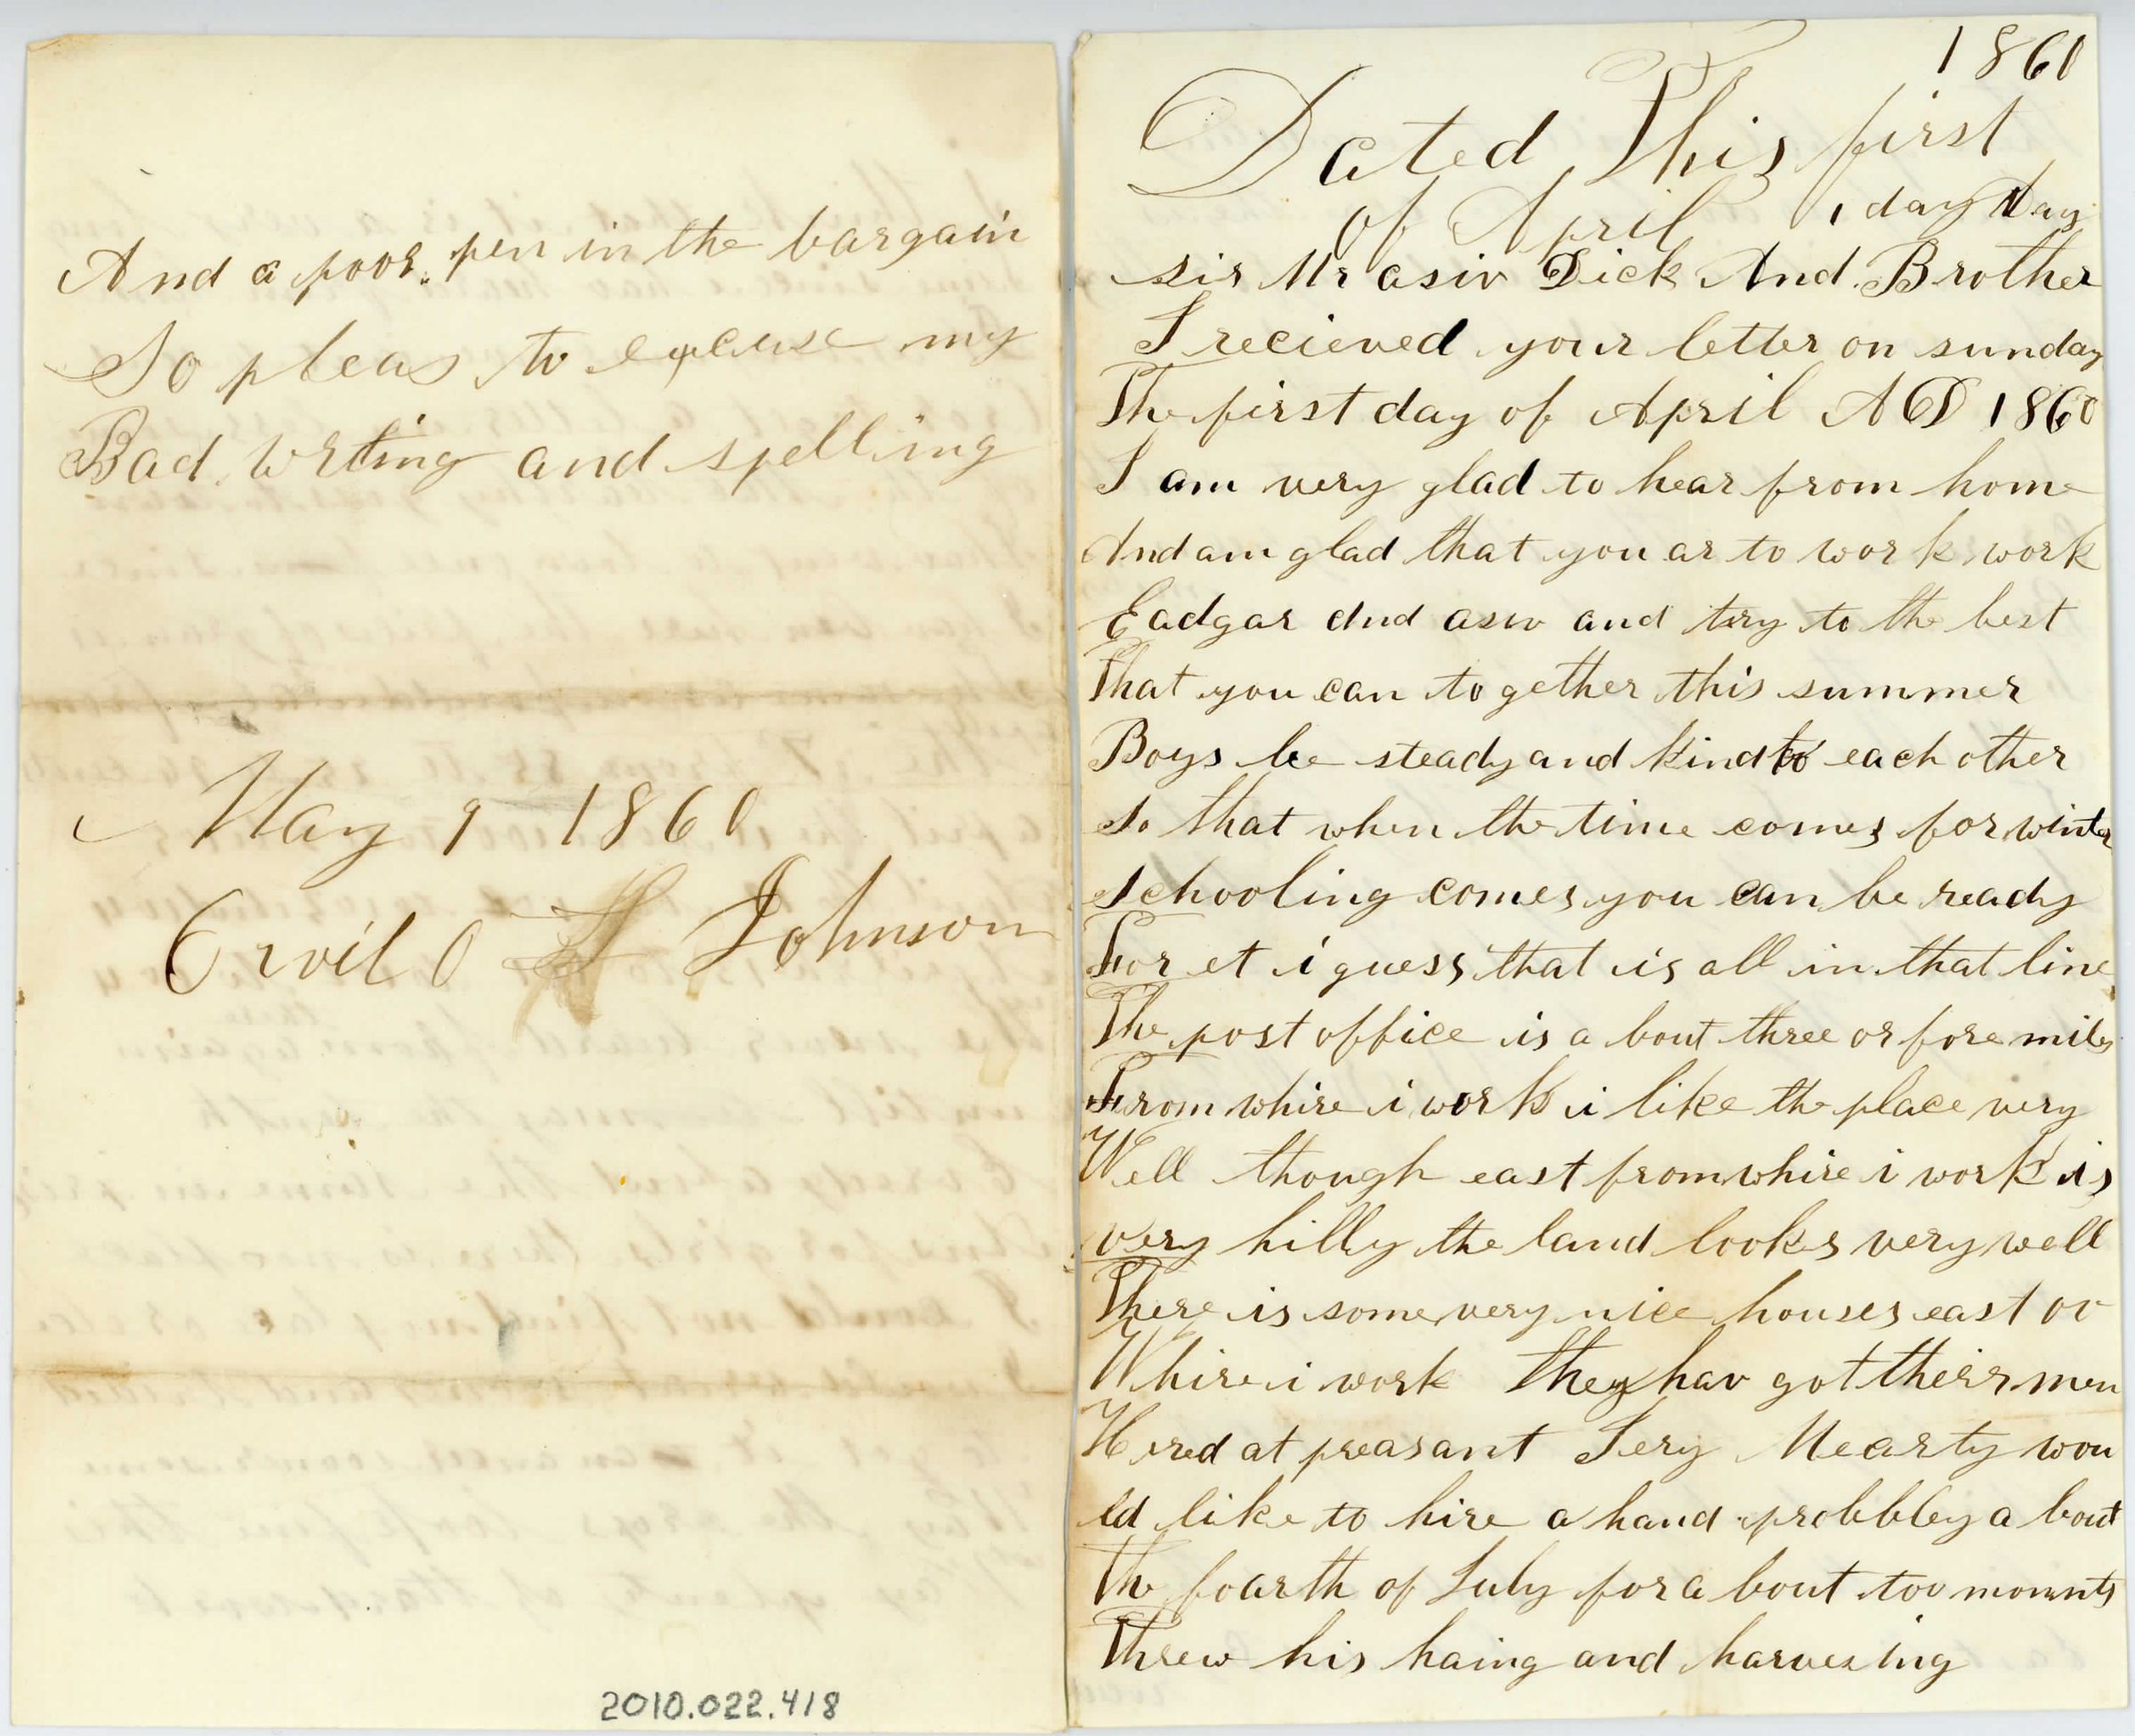 And a poor pen in the bargain
So pleas to excuse my
Bad writing and spelling
May 9 1860
Orvil O H Johnson
2010.022.418
1860
Dated This first
of April 1 day Day
sir Mr asiv Dick And Brother
I recieved your letter on sunday
The first day of April AD 1860
I am very glad to hear from home
And am glad that you ar to work work
Eadgar And asiv and try to the best
That you can to gether this summer
Boys be steady and kind to each other
So that when the time comes for winter
schooling comes you can be ready
For et i guess that is all in that line
The post office is a bout three or fore miles
From whire i work i like the place very
Well though east from whire i work is
very hilly the land looks very well
There is some very nice houses east ov
Whire i work they hav got theirr men
Hired at preasant Jery Mearty wou
ld like to hire a hand probbley a bout
The foarth of July for a bout too mownts
Threw his haing and harvesing